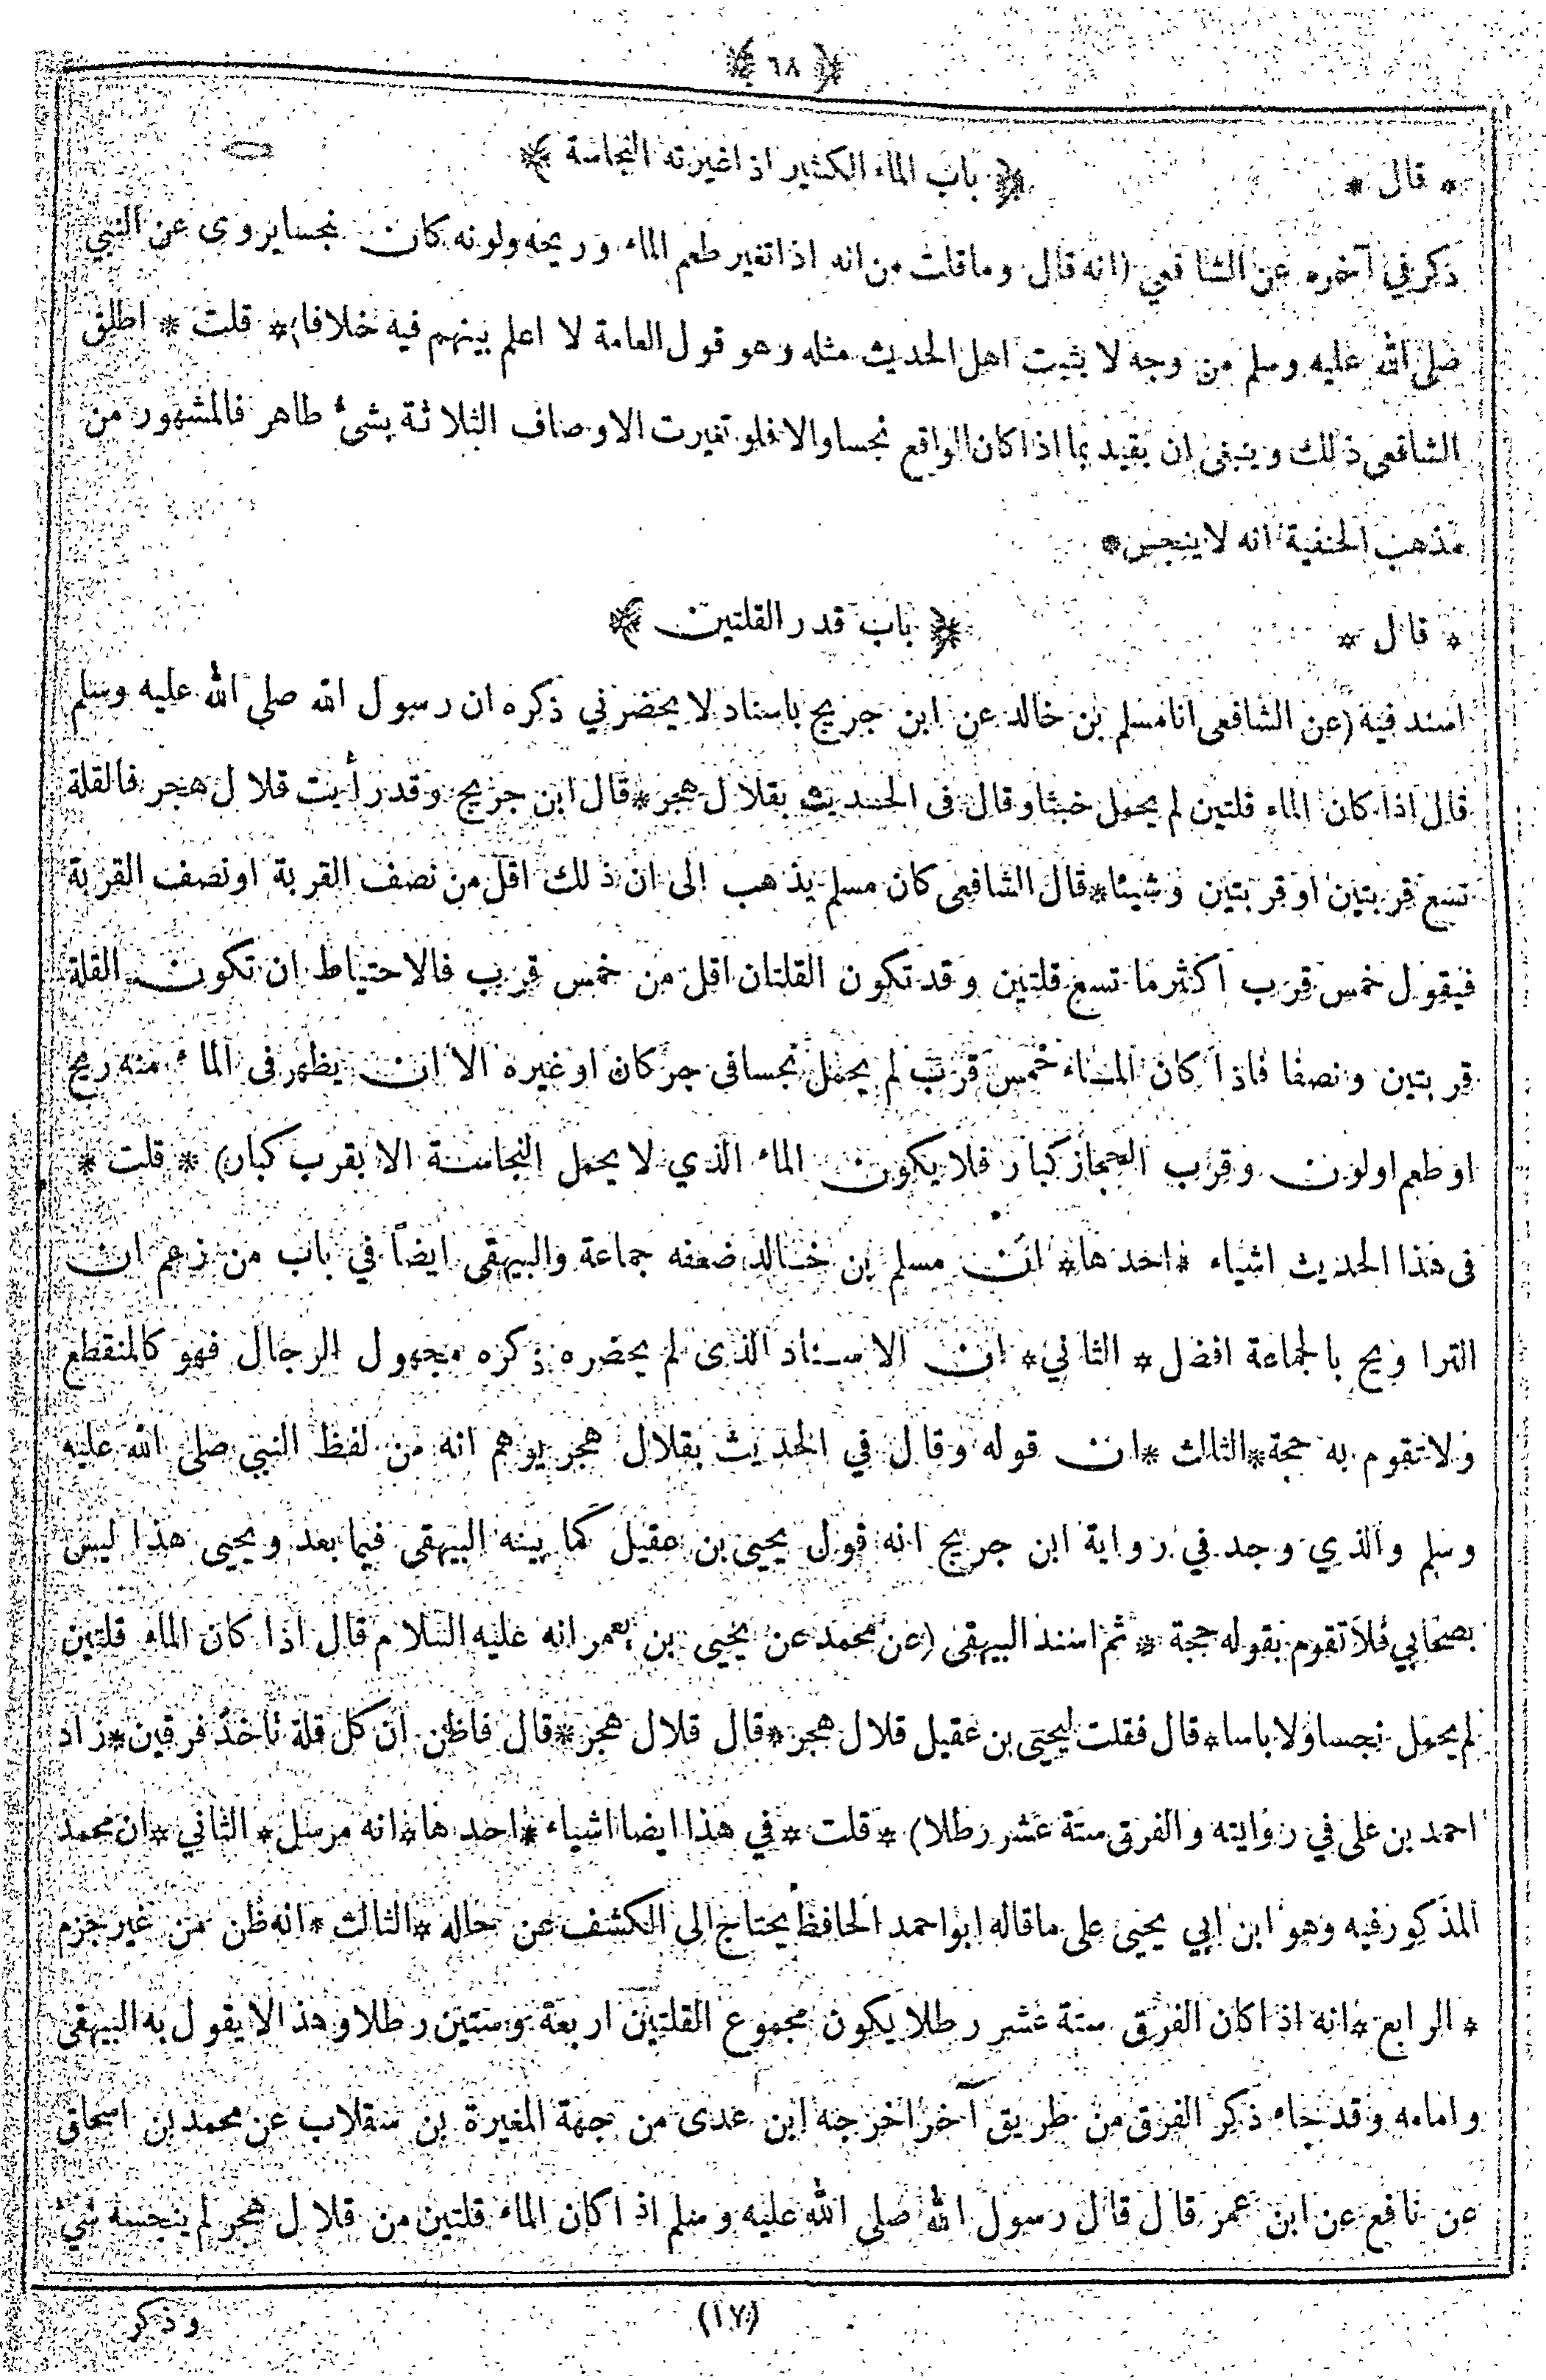 ﴿ ٦٨ ﴾
* قال * ﴿ باب الماء الكثير اذا غيرته النجاسة ﴾
ذكر في آخره عن الشافعي (انه قال وما قلت من انه اذا تغير طعم الماء وريحه ولونه كان نجسا يروى عن النبي
صلى الله عليه وسلم من وجه لا يثبت اهل الحديث مثله وهو قول العامة لا اعلم بينهم فيه خلافا) * قلت * اطلق
الشافعى ذلك وينبغى ان يقيد بما اذا كان الواقع نجسا والا فلو تغيرت الاوصاف الثلاثة بشئ طاهر فالمشهور من
مذهب الحنفية انه لا ينجس *
* قال * ﴿ باب قدر القلتين ﴾
اسند فيه (عن الشافعى انا مسلم بن خالد عن ابن جريج باسناد لا يحضرني ذكره ان رسول الله صلى الله عليه وسلم
قال اذا كان الماء قلتين لم يحمل خبثا وقال فى الحديث بقلال هجر * قال ابن جريج وقد رأيت قلال هجر فالقلة
تسع قربتين او قربتين وشيئا * قال الشافعى كان مسلم يذهب الى ان ذلك اقل من نصف القربة او نصف القربة
فيقول خمس قرب اكثر ما تسع قلتين وقد تكون القلتان اقل من خمس قرب فالاحتياط ان تكون القلة
قربتين ونصفا فاذا كان الماء خمس قرب لم يحمل نجسا فى جر كان او غيره الا ان يظهر فى الماء منه ريح
او طعم او لون وقرب الحجاز كبار فلا يكون الماء الذي لا يحمل النجاسة الا بقرب كبار) * قلت *
فى هذا الحديث اشياء * احدها * ان مسلم بن خالد ضعفه جماعة والبيهقى ايضاً في باب من زعم ان
التراويح بالجماعة افضل * الثاني * ان الاسناد الذى لم يحضره ذكره مجهول الرجال فهو كالمنقطع
ولا تقوم به حجة * الثالث * ان قوله وقال في الحديث بقلال هجر يوهم انه من لفظ النبي صلى الله عليه
وسلم والذي وجد في رواية ابن جريج انه قول يحيى بن عقيل كما بينه البيهقى فيما بعد ويحيى هذا ليس
بصحابي فلا تقوم بقوله حجة * ثم اسند البيهقى (عن محمد عن يحيى بن يعمر انه عليه السلام قال اذا كان الماء قلتين
لم يحمل نجسا ولا باسا * قال فقلت ليحيى بن عقيل قلال هجر * قال قلال هجر * قال فاظن ان كل قلة تاخذ فرقين * زاد
احمد بن على في روايته والفرق ستة عشر رطلا) * قلت * في هذا ايضا اشياء * احدها * انه مرسل * الثاني * ان محمد
المذكور فيه وهو ابن ابي يحيى على ما قاله ابو احمد الحافظ يحتاج الى الكشف عن حاله * الثالث * انه ظن من غير جزم
* الرابع * انه اذا كان الفرق ستة عشر رطلا يكون مجموع القلتين اربعة وستين رطلا وهذا لا يقول به البيهقى
وامامه وقد جاء ذكر الفرق من طريق آخر اخرجه ابن عدى من جهة المغيرة بن سقلاب عن محمد بن اسحاق
عن نافع عن ابن عمر قال قال رسول الله صلى الله عليه وسلم اذا كان الماء قلتين من قلال هجر لم ينجسه شئ
(١٧) وذكر